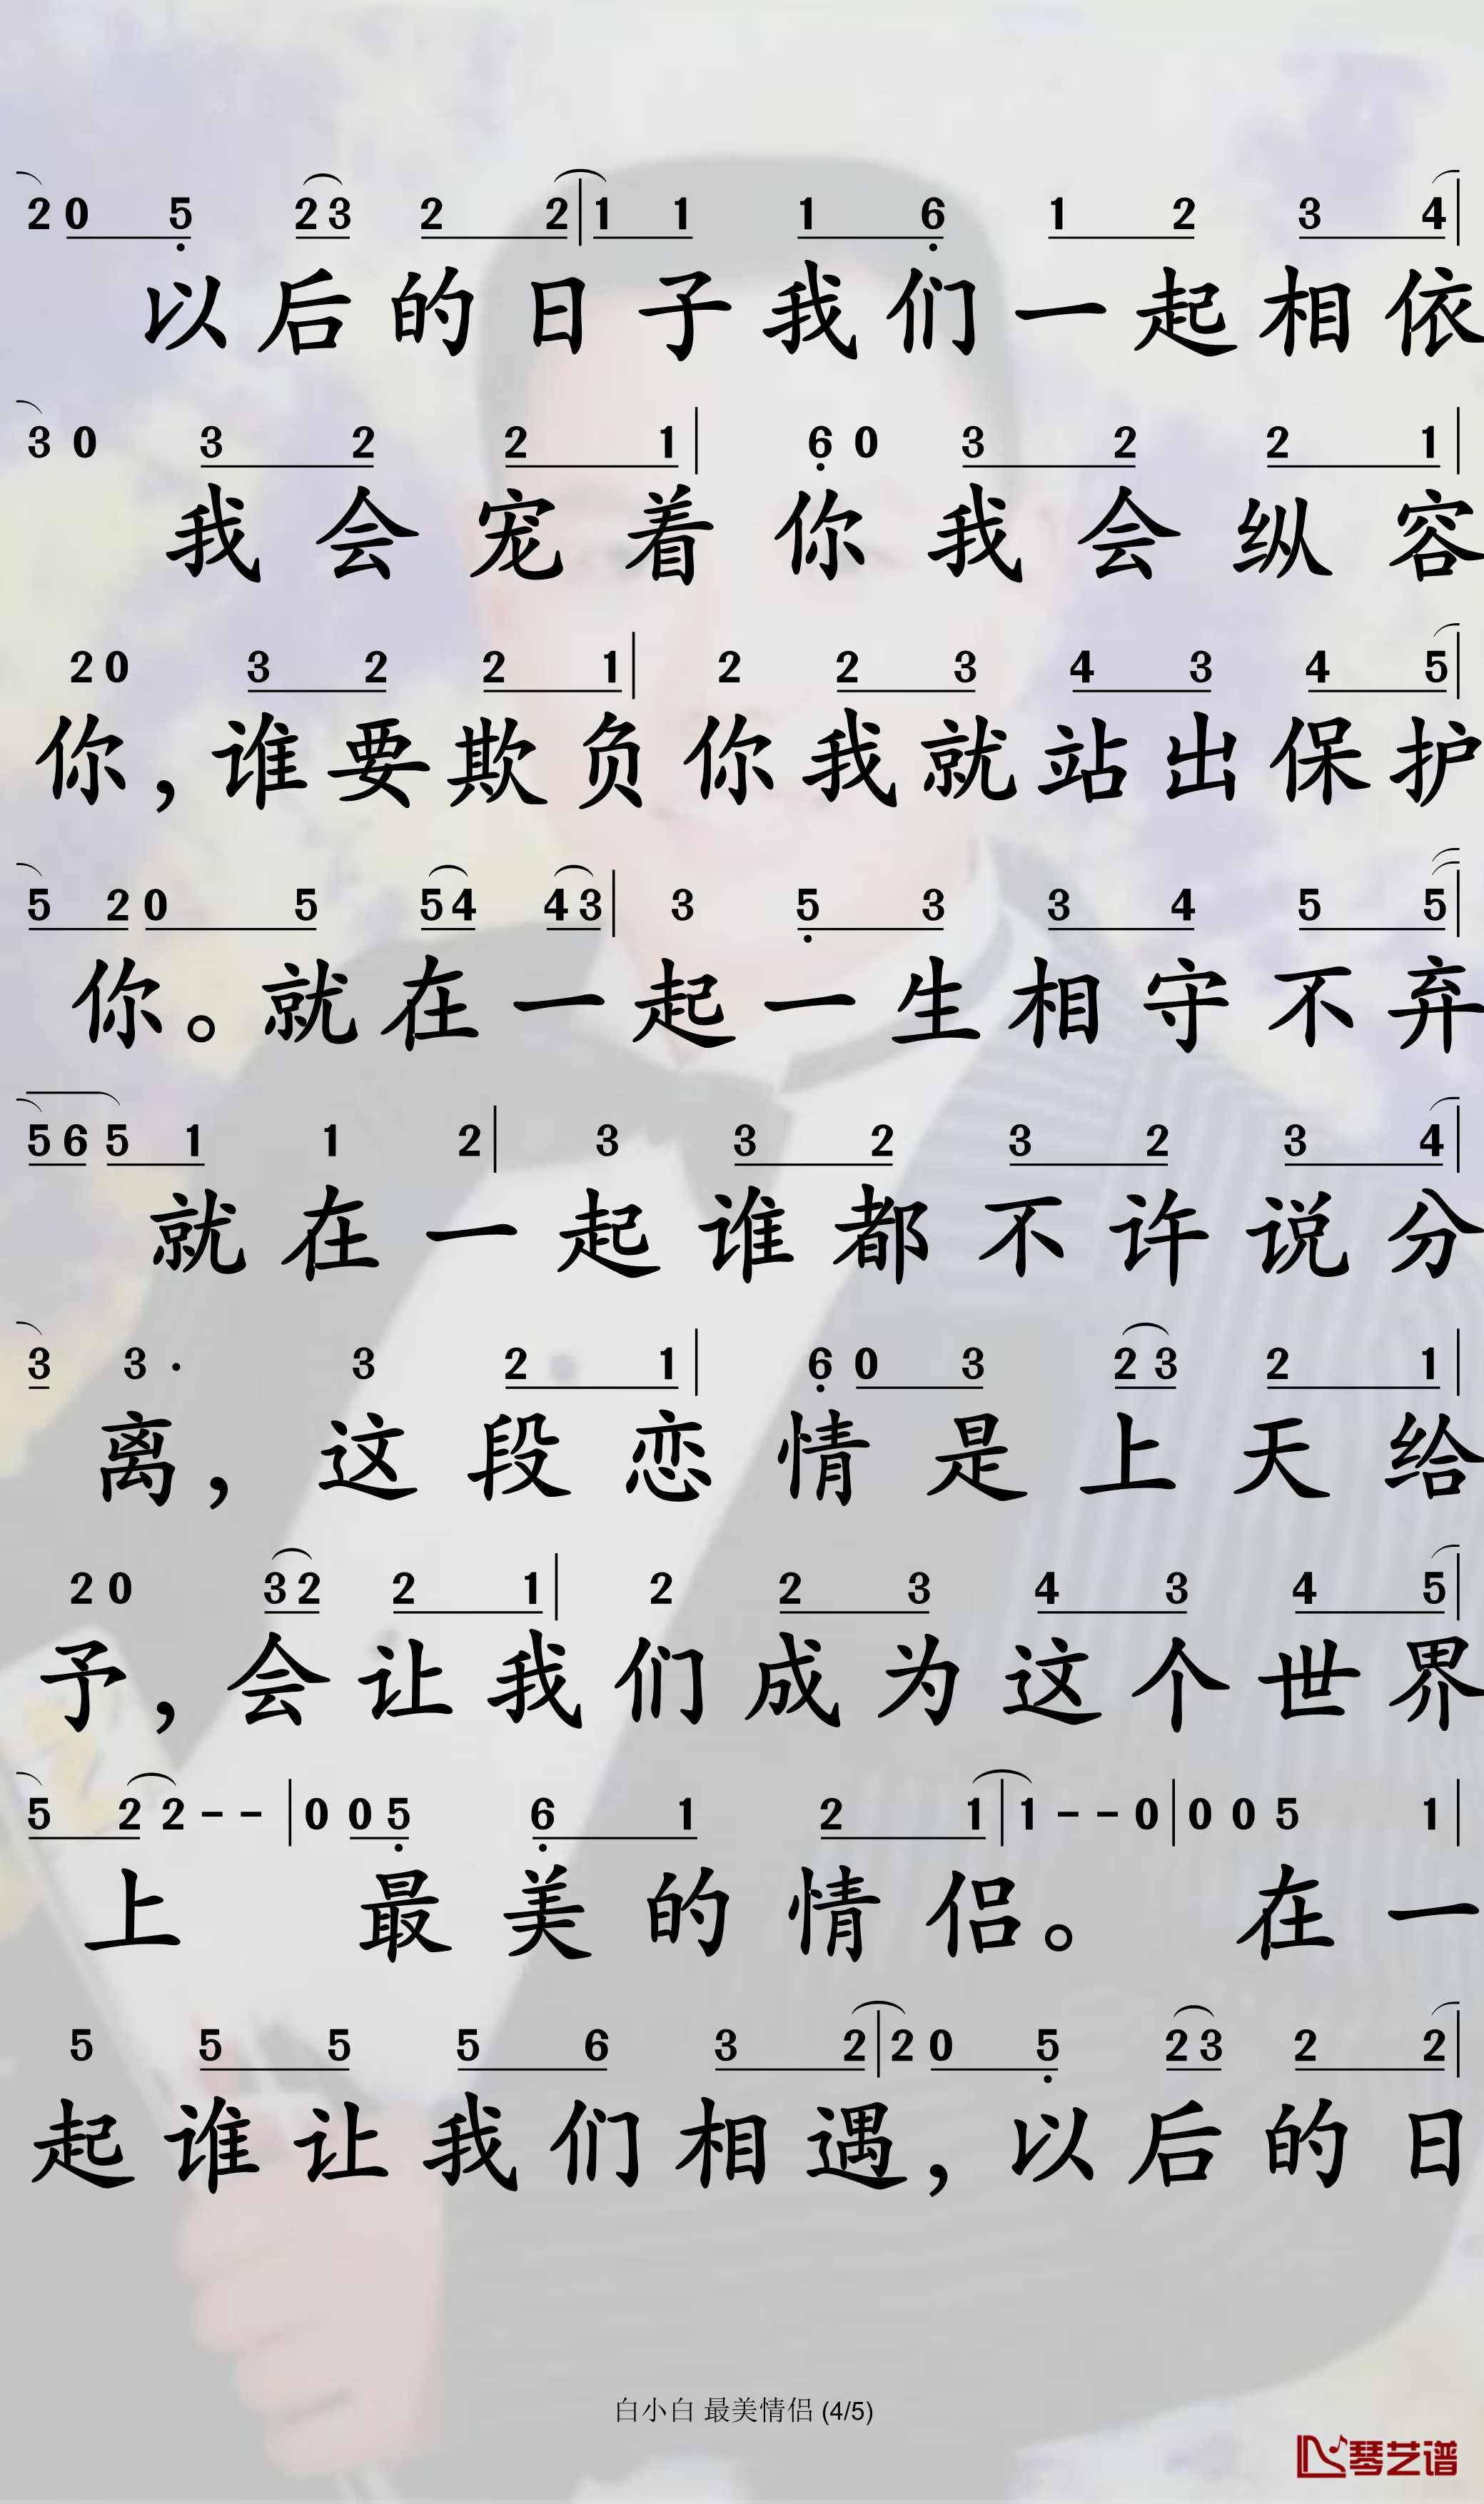 2 0 5 2 3 2 2 | 1 1 1 6 1 2 3 4 |
以后的日子我们一起相依
3 0 3 2 2 1 | 6 0 3 2 2 1 |
我会宠着你我会纵容
2 0 3 2 2 1 | 2 2 3 4 3 4 5 |
你，谁要欺负你我就站出保护
5 2 0 5 5 4 4 3 | 3 5 3 3 4 5 5 |
你。就在一起一生相守不弃
5 6 5 1 1 2 | 3 3 2 3 2 3 4 |
就在一起谁都不许说分
3 3 · 3 2 1 | 6 0 3 2 3 2 1 |
离，这段恋情是上天给
2 0 3 2 2 1 | 2 2 3 4 3 4 5 |
予，会让我们成为这个世界
5 2 2 - - | 0 0 5 6 1 2 1 | 1 - - 0 | 0 0 5 1 |
上 最美的情侣。 在一
5 5 5 5 6 3 2 | 2 0 5 2 3 2 2 |
起谁让我们相遇，以后的日
白小白 最美情侣 (4/5)
琴艺谱